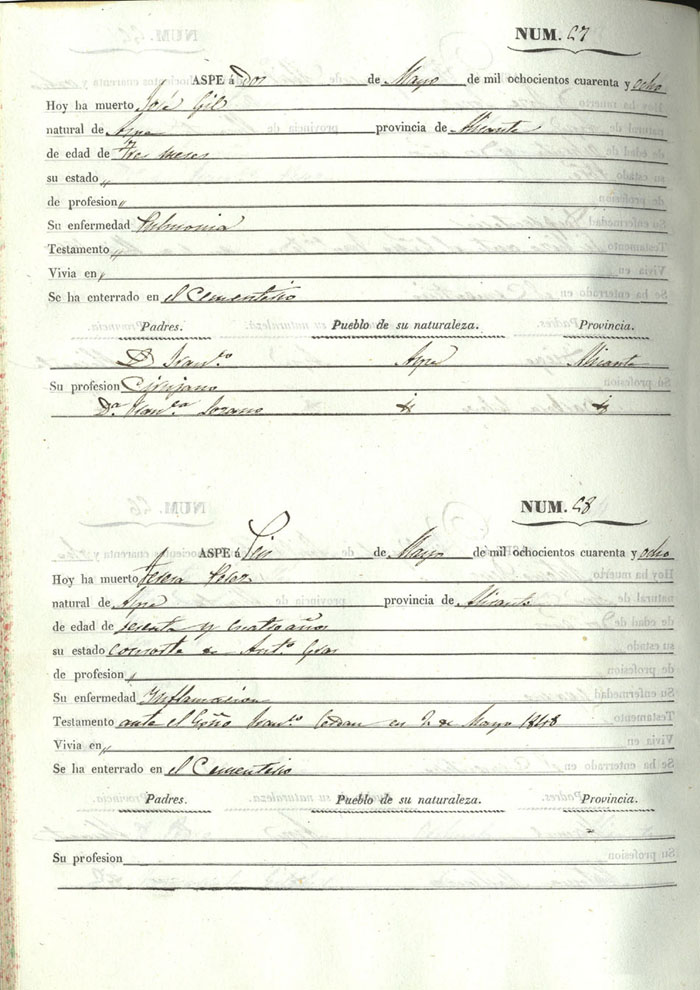 NUM. 27
ASPE á Dos de Mayo de mil ochocientos cuarenta y ocho
Hoy ha muerto José Gil
natural de Aspe provincia de Alicante
de edad de Tres meses
su estado "
de profesion "
Su enfermedad Pulmonia
Testamento "
Vivia en "
Se ha enterrado en el Cementerio
Padres. Pueblo de su naturaleza. Provincia.
D. Fran.co Aspe Alicante
Su profesion Cirujano
Da. Fran.ca Lozano
NUM. 28
ASPE á Seis de Mayo de mil ochocientos cuarenta y ocho
Hoy ha muerto Teresa
natural de Aspe provincia de Alicante
de edad de sesenta y cuatro años
su estado consorte de Ant.o
de profesion "
Su enfermedad Inflamacion
Testamento ante el Fran.co en 2 de Mayo 1848
Vivia en "
Se ha enterrado en el Cementerio
Padres. Pueblo de su naturaleza. Provincia.
Su profesion